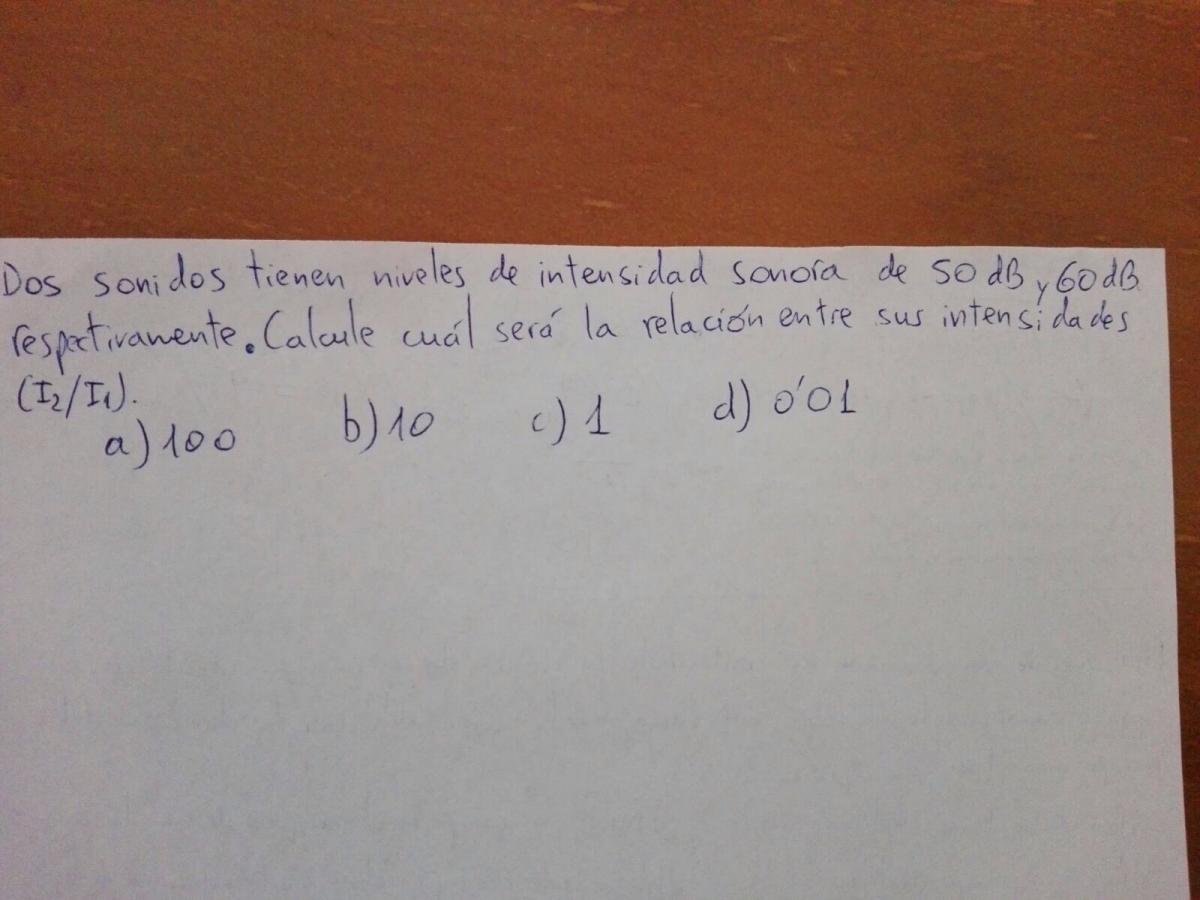 Dos sonidos tienen niveles de intensidad sonora de 50 dB y 60 dB
respectivamente. Calcule cuál será la relación entre sus intensidades
(I₂/I₁).
a) 100 b) 10 c) 1 d) 0'01